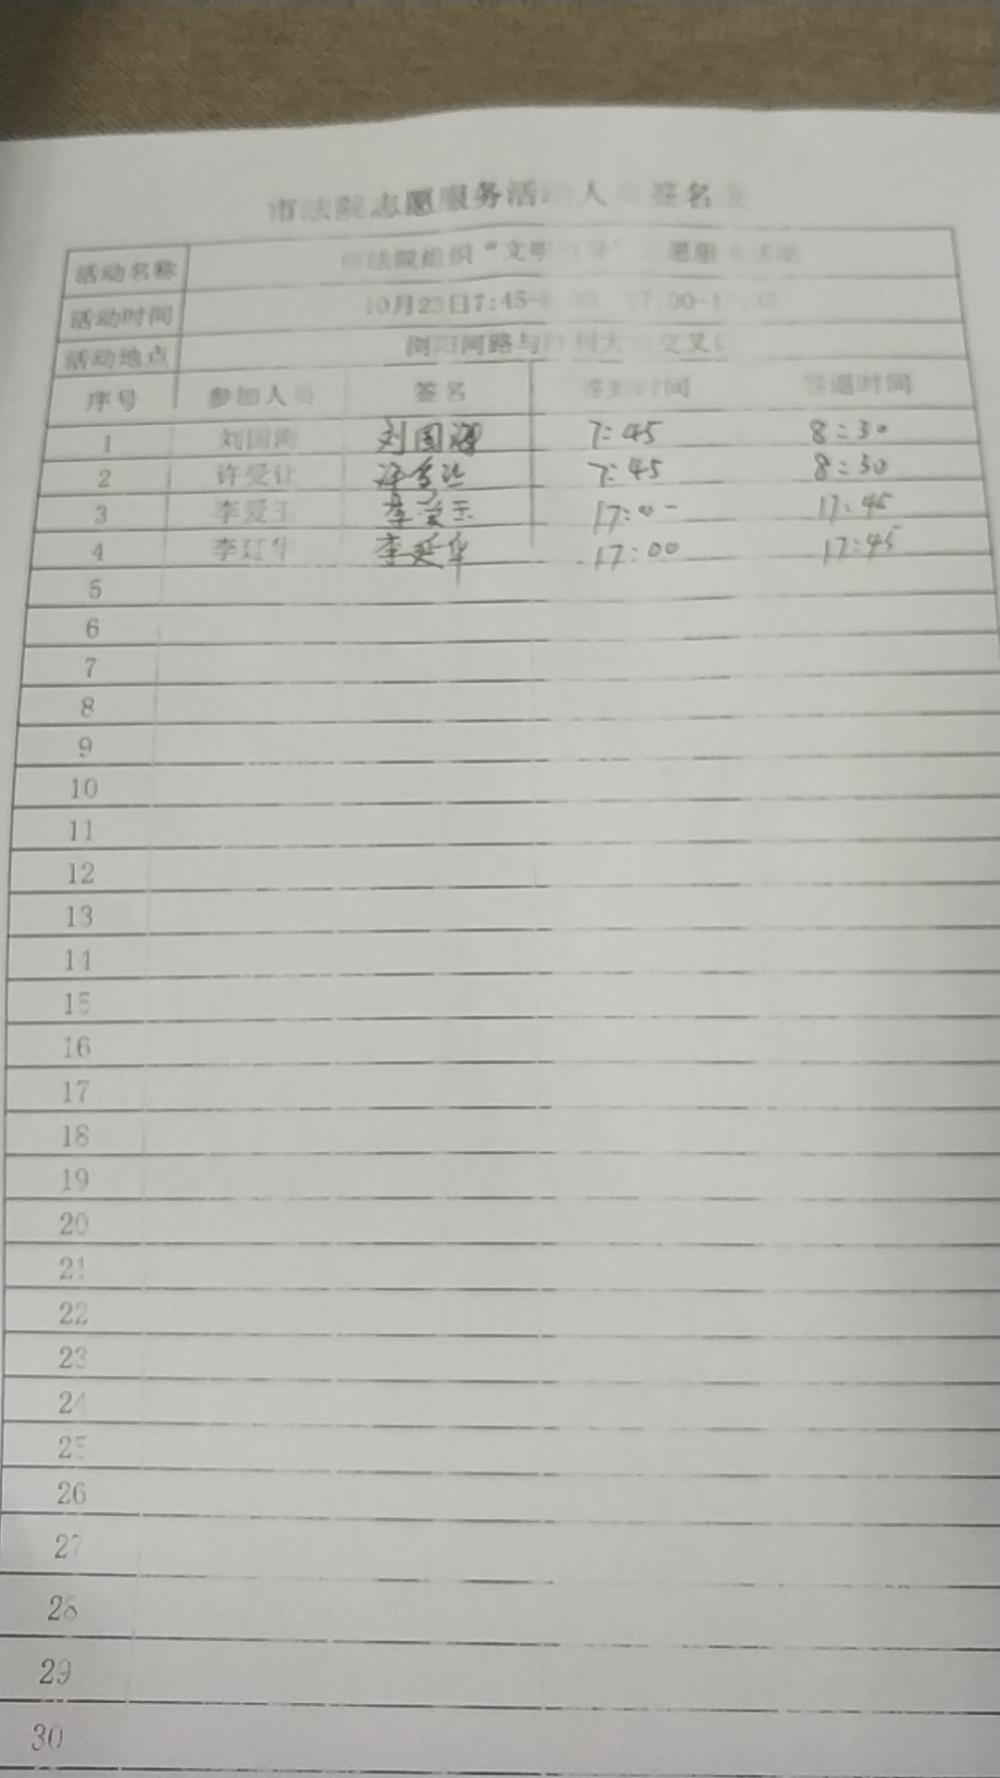 市法院志愿服务活动人员签名表
活动名称 市法院组织“文明引导”志愿服务活动
活动时间 10月23日7:45-8:30 17:00-17:45
活动地点 浏阳河路与 大 交叉口
序号 参加人员 签名 签到时间 签退时间
1 刘国 刘国 7:45 8:30
2 许受让 许受让 7:45 8:30
3 李爱玉 李爱玉 17:00 17:45
4 李延华 李延华 17:00 17:45
5
6
7
8
9
10
11
12
13
14
15
16
17
18
19
20
21
22
23
24
25
26
27
28
29
30